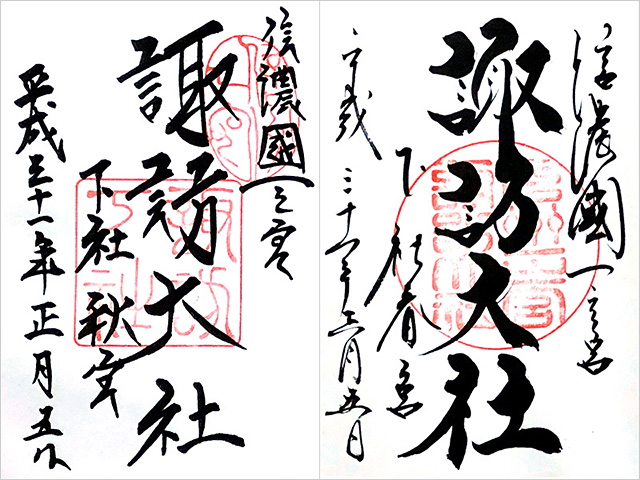 信濃國一之宮
諏訪大社
下社春宮
平成三十一年正月五日
信濃國一之宮
諏訪大社
下社秋宮
平成三十一年正月五日